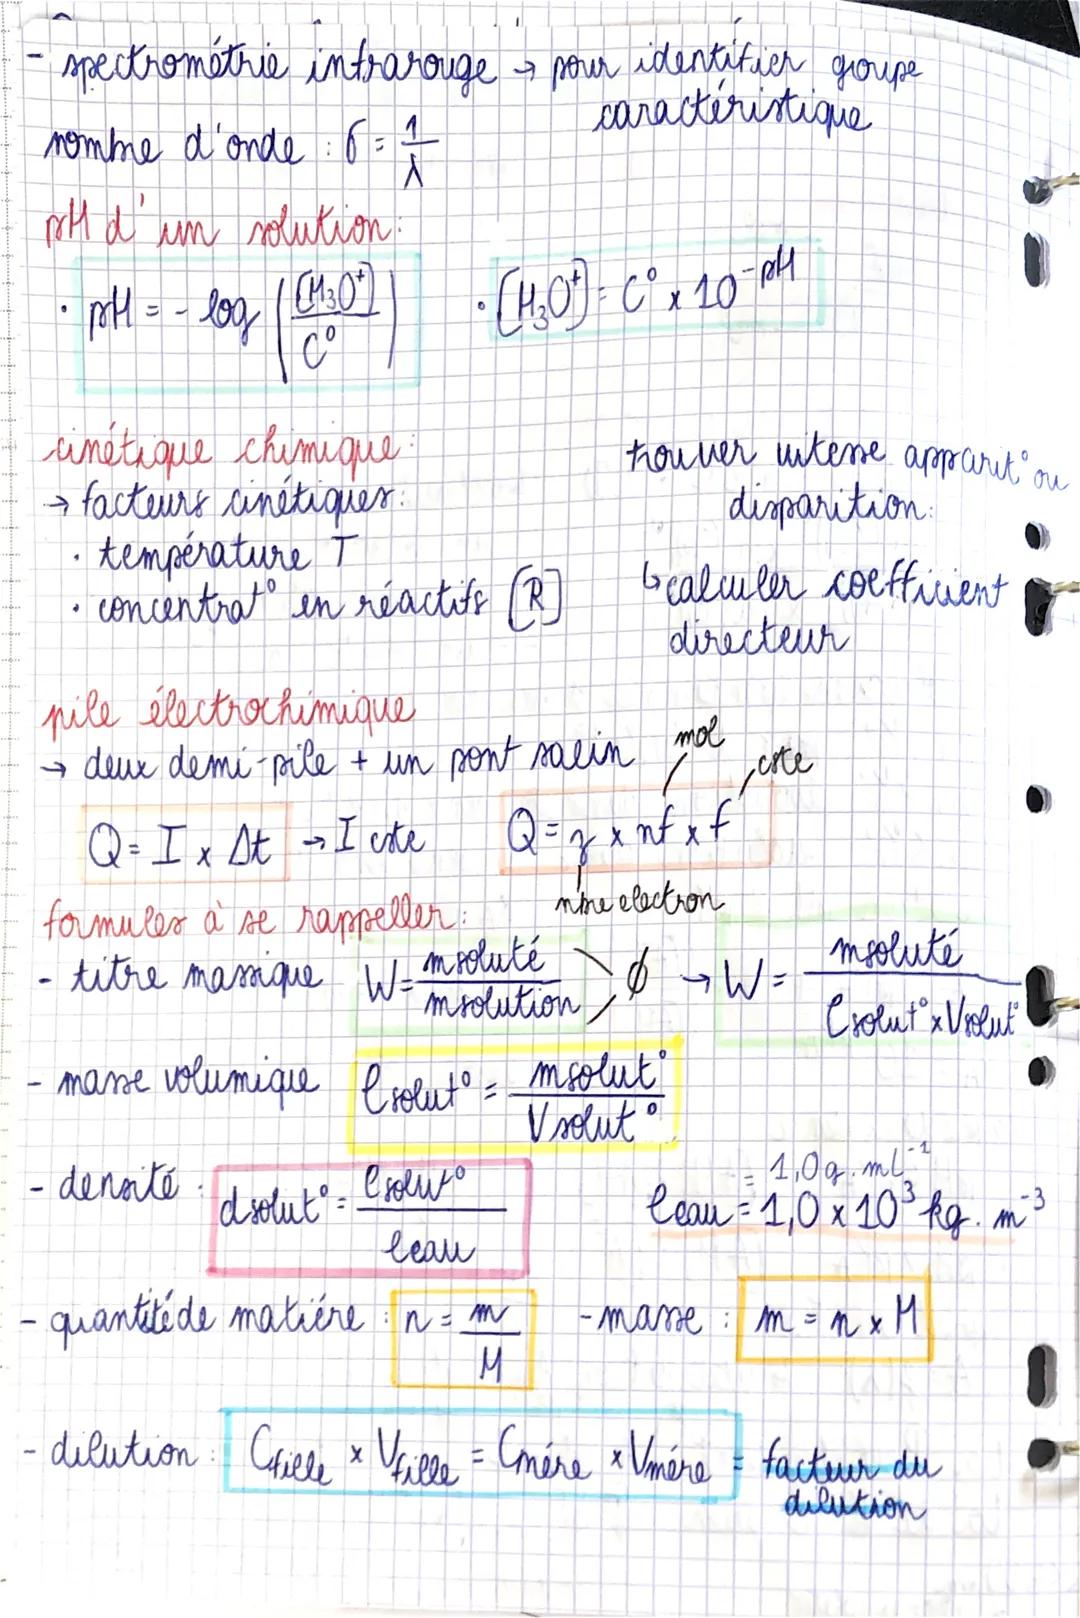 - spectrométrie infrarouge → pour identifier groupe
caractéristique
nombre d'onde : σ = 1/λ
pH d'un solution:
· pH = - log ([H₃O⁺]/C°) · [H₃O⁺] = C° x 10^-pH
cinétique chimique:
→ facteurs cinétiques:
· température T
· concentrat° en réactifs [R]
trouver vitesse apparit° ou
disparition:
↳ calculer coefficient
directeur
pile électrochimique
→ deux demi-pile + un pont salin
mol
cste
Q = I x Δt → I cste Q = z x nf x f
nbre electron
formules à se rappeller:
- titre massique W = msoluté/msolution > ∅ → W = msoluté/(ρsolut° x Vsolut°)
- masse volumique ρsolut° = msolut°/Vsolut°
- densité : dsolut° = ρsolut°/ρeau
= 1,0g.mL⁻¹
ρeau = 1,0 x 10³ kg.m⁻³
- quantité de matiére : n = m/M - masse : m = n x M
- dilution : Cfille x Vfille = Cmére x Vmére = facteur du
dilution